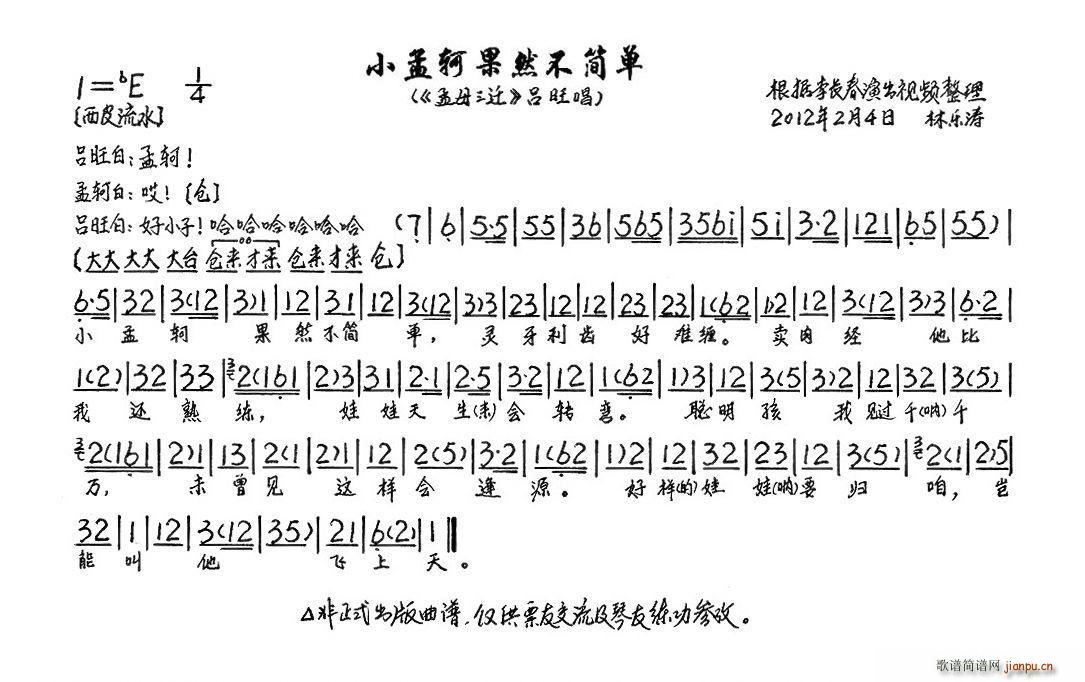 小孟轲果然不简单
(《孟母三迁》吕旺唱)
1=bE 1/4
[西皮流水]
根据李长春演出视频整理
2012年2月4日 林乐涛
吕旺白:孟轲!
孟轲白:哎![仓]
吕旺白:好小子!哈哈哈哈哈哈 (7|6|5·5|55|36|565|356i|5i|3·2|121|65|55)|
[大大 大大 大台 仓来才来 仓来才来 仓]
6·5|32|3(12|3)1|12|31|12|3(12|3)3|23|12|12|23|23|1(62|1)2|12|3(12|3)3|6·2|
小孟轲果然不简单,灵牙利齿好难缠。卖肉经他比
1(2)|32|33|2(161|2)3|31|2·1|2·5|3·2|12|1(62|1)3|12|3(5|3)2|12|32|3(5)|
我还熟练,娃娃天生(来)会转弯。聪明孩我见过千(呐)千
2(161|2)1|13|2(1|2)1|12|2(5)|3·2|1(62|1)2|12|32|23|12|3(5)|2(1|2)5|
万,未曾见这样会逢源。好样(的)娃娃(呐)要归咱,岂
32|1|12|3(12|35)|21|6(2)|1‖
能叫他飞上天。
△非正式出版曲谱,仅供票友交流及琴友练功参考。
歌谱简谱网 jianpu.cn